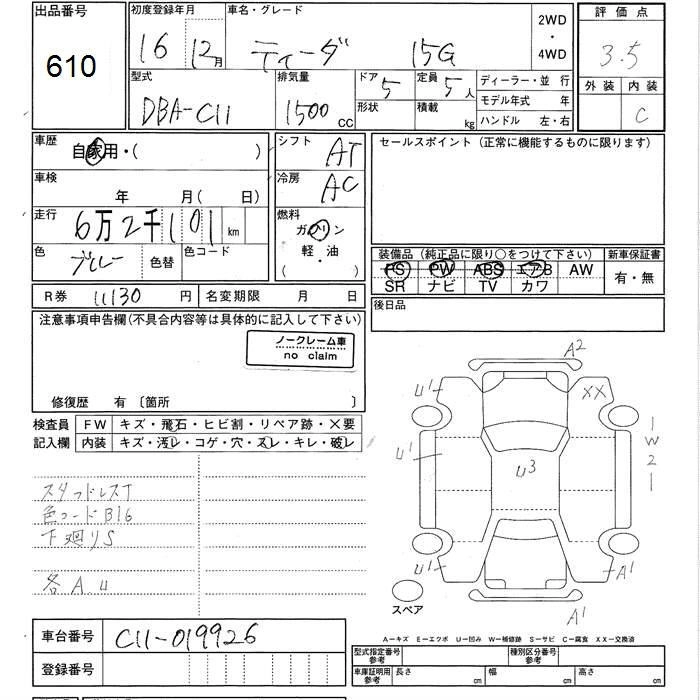 出品番号
610
初度登録年月
16 12月
車名・グレード
ティーダ 15G
2WD
・
4WD
評価点
3.5
外装 内装
C
型式
DBA-C11
排気量
1500 CC
ドア 5
形状
定員 5人
積載 kg
ディーラー・並行
モデル年式 年
ハンドル 左・右
車歴
自家用・( )
シフト
AT
セールスポイント(正常に機能するものに限ります)
車検
年 月( 日)
冷房
AC
走行
6万2千101km
燃料
ガソリン
・
軽・油
( )
色
ブルー
色替
色コード
装備品(純正品に限り○をつけて下さい)
新車保証書
PS PW ABS エアB AW
SR ナビ TV カワ
有・無
R券 11130 円
名変期限 月 日
後日品
注意事項申告欄(不具合内容等は具体的に記入して下さい)
ノークレーム車
no claim
修復歴 有〔箇所 〕
検査員
記入欄
FW キズ・飛石・ヒビ割・リペア跡・×要
内装 キズ・汚レ・コゲ・穴・スレ・キレ・破レ
スタッドレスT
色コードB16
下廻りS
各A.U
A2
U1
XX
W2
U1
U3
U1
A1
A1
スペア
A－キズ E－エクボ U－凹み W－補修跡 S－サビ C－腐食 XX－交換済
車台番号
C11-019926
登録番号
型式指定番号
参考
種別区分番号
参考
車庫証明用
参考
長さ cm
幅 cm
高さ cm